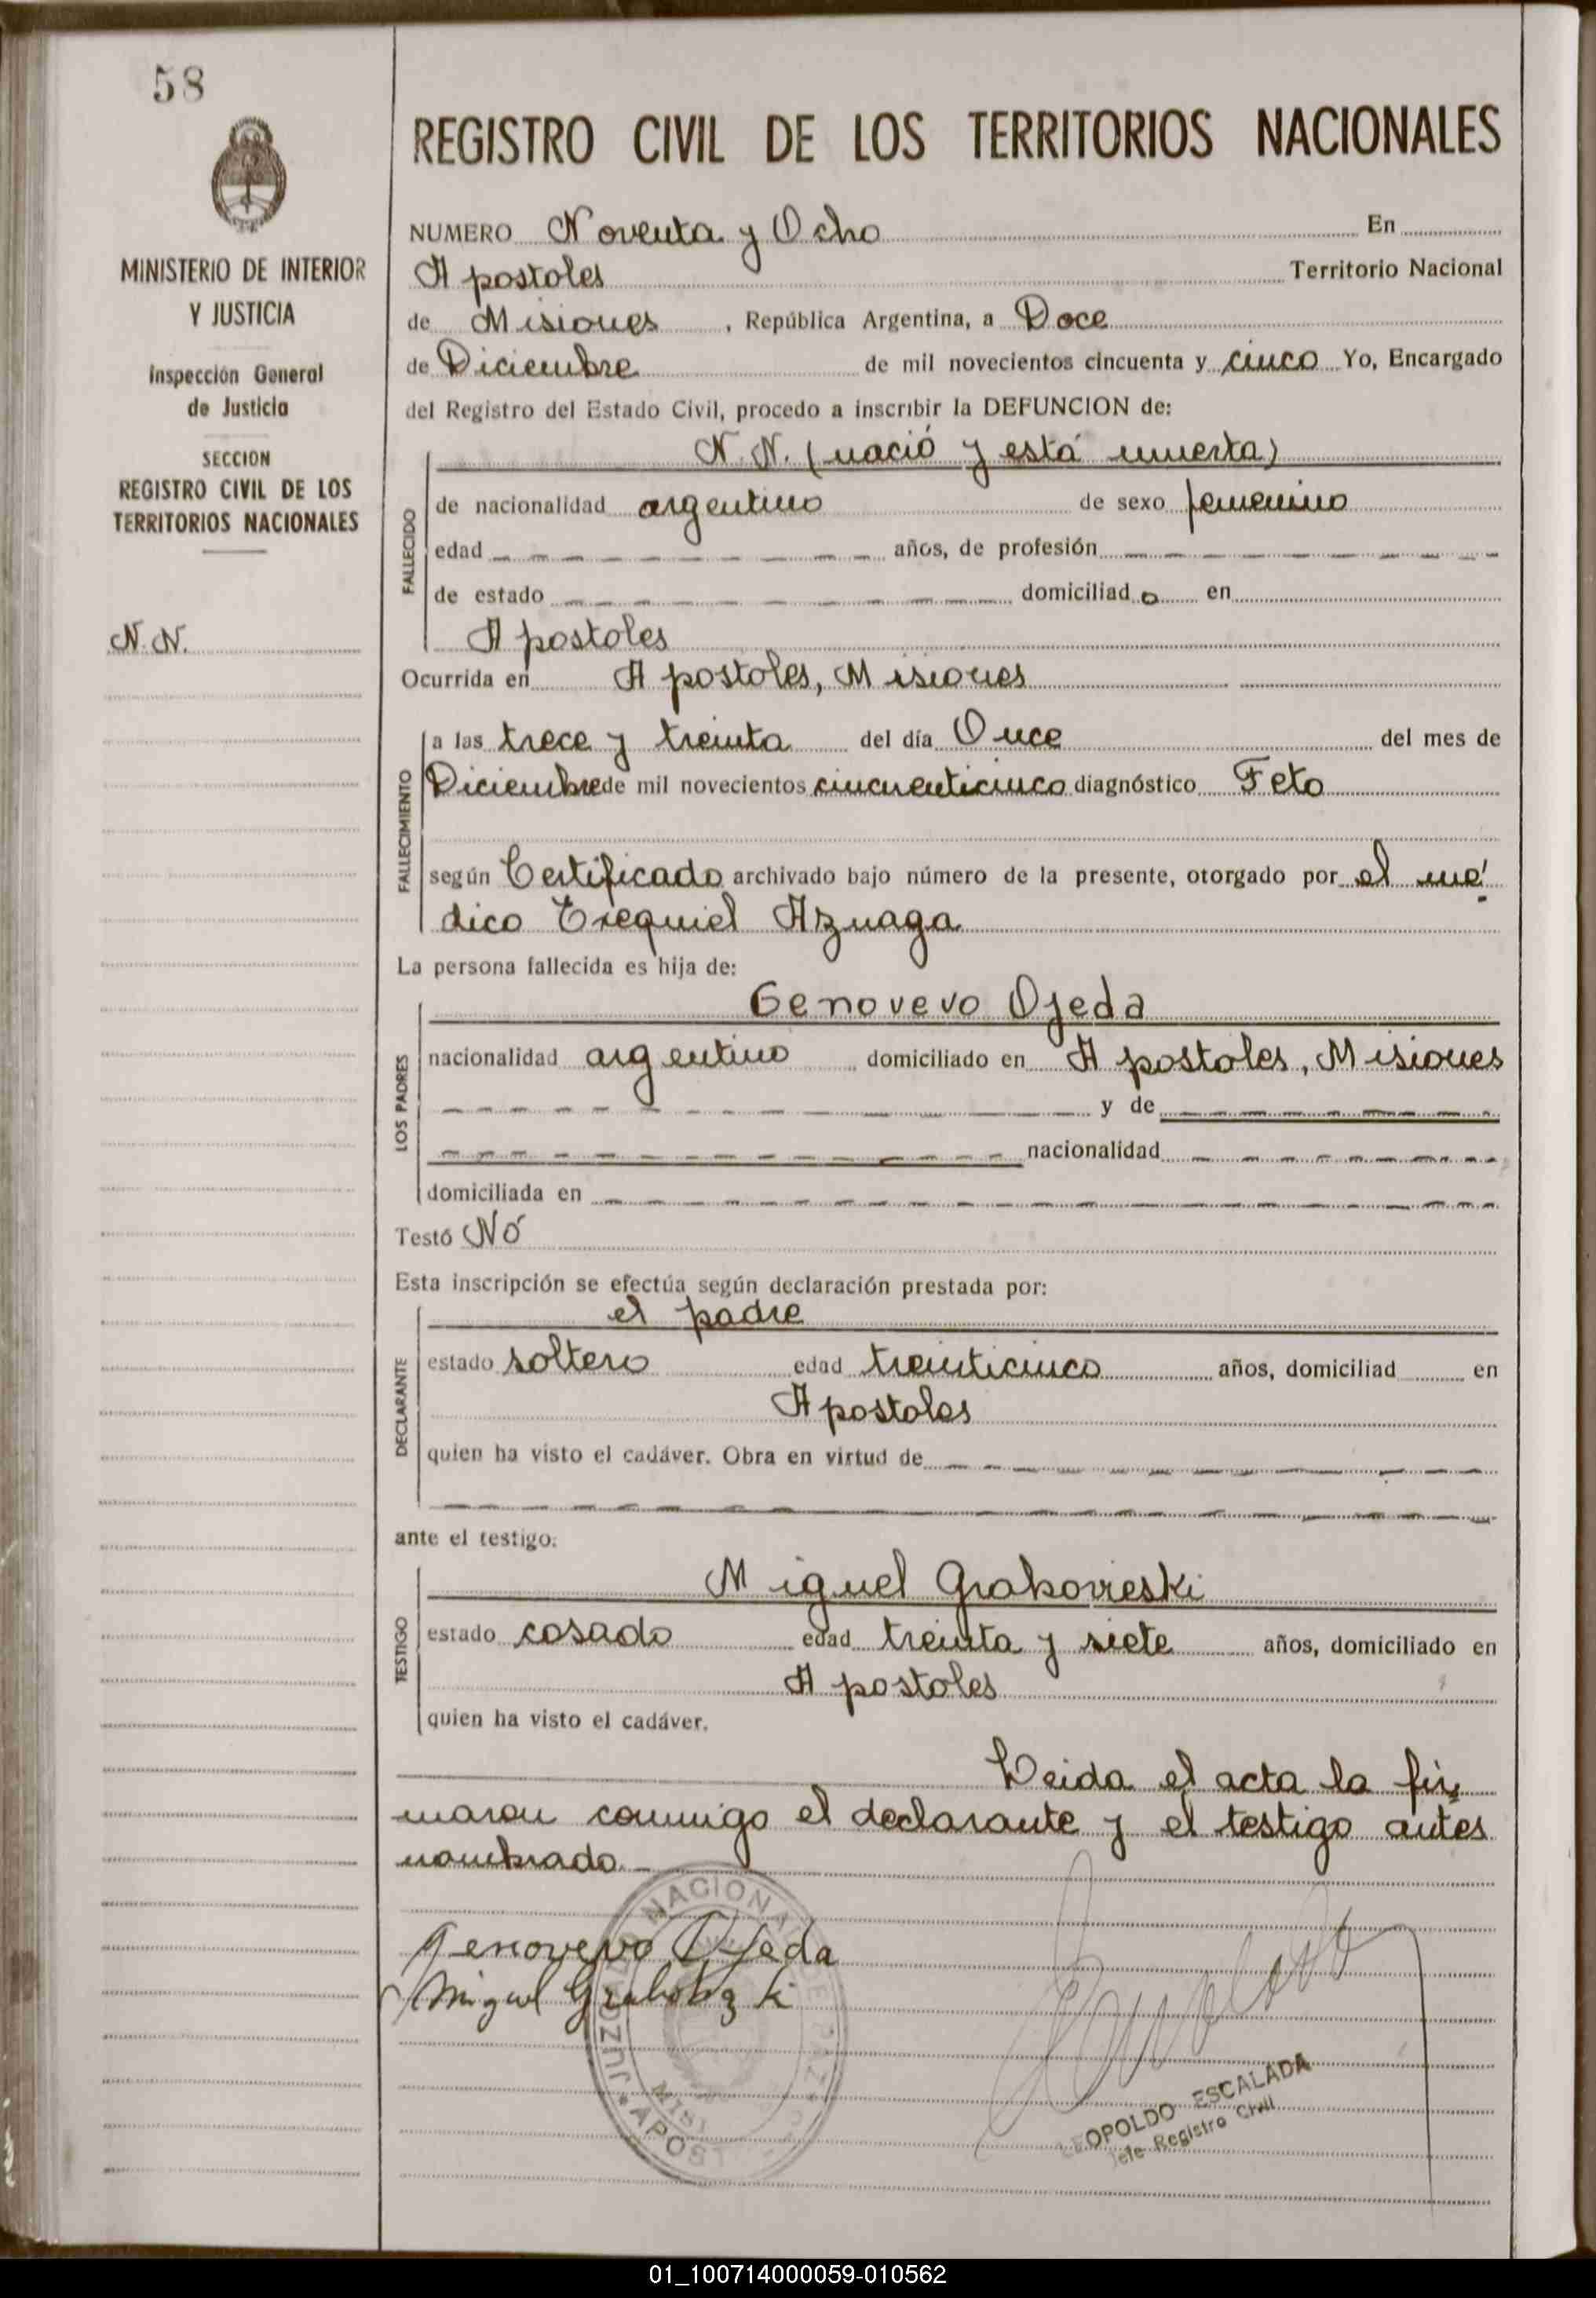 58
REGISTRO CIVIL DE LOS TERRITORIOS NACIONALES
MINISTERIO DE INTERIOR
Y JUSTICIA
Inspección General
de Justicia
SECCION
REGISTRO CIVIL DE LOS
TERRITORIOS NACIONALES
N. N.
NUMERO Noventa y Ocho En
Apostoles Territorio Nacional
de Misiones, República Argentina, a Doce
de Diciembre de mil novecientos cincuenta y cinco Yo, Encargado
del Registro del Estado Civil, procedo a inscribir la DEFUNCION de:
FALLECIDO
N. N. (nació y está muerta)
de nacionalidad argentino de sexo femenino
edad años, de profesión
de estado domiciliado en
Apostoles
Ocurrida en Apostoles, Misiones
FALLECIMIENTO
a las trece y treinta del día Once del mes de
Diciembre de mil novecientos cincuenticinco diagnóstico Feto
según Certificado archivado bajo número de la presente, otorgado por el mé
dico Exequiel Azuaga
La persona fallecida es hija de:
LOS PADRES
Genovevo Ojeda
nacionalidad argentino domiciliado en Apostoles, Misiones
y de
nacionalidad
domiciliada en
Testó Nó
Esta inscripción se efectúa según declaración prestada por:
DECLARANTE
el padre
estado soltero edad treinticinco años, domiciliad en
Apostoles
quien ha visto el cadáver. Obra en virtud de
ante el testigo:
TESTIGO
Miguel Grabovieski
estado casado edad treinta y siete años, domiciliado en
Apostoles
quien ha visto el cadáver.
Leida el acta la fir
maron conmigo el declarante y el testigo antes
nombrado.
Genovevo Ojeda
Miguel
LEOPOLDO ESCALADA
Jefe Registro Civil
01_100714000059-010562